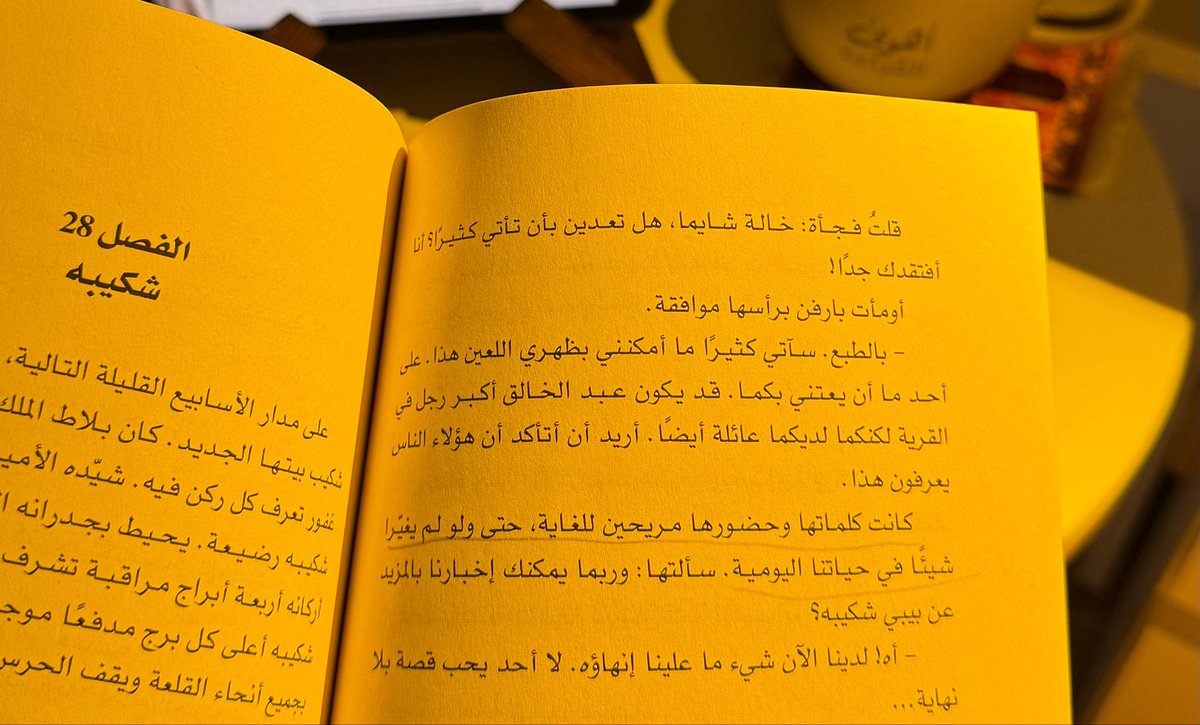 قلتُ فجأة: خالة شايما، هل تعدين بأن تأتي كثيرًا؟ أنا
أفتقدك جدًا!
أومأت بارفن برأسها موافقة.
– بالطبع. سآتي كثيرًا ما أمكنني بظهري اللعين هذا. على
أحد ما أن يعتني بكما. قد يكون عبد الخالق أكبر رجل في
القرية لكنكما لديكما عائلة أيضًا. أريد أن أتأكد أن هؤلاء الناس
يعرفون هذا.
كانت كلماتها وحضورها مريحين للغاية، حتى ولو لم يغيّرا
شيئًا في حياتنا اليومية. سألتها: وربما يمكنك إخبارنا بالمزيد
عن بيبي شكيبه؟
– أه! لدينا الآن شيء ما علينا إنهاؤه. لا أحد يحب قصة بلا
نهاية...
الفصل 28
شكيبه
على مدار الأسابيع القليلة التالية،
شكيب بيتها الجديد. كان بلاط الملك
غفور تعرف كل ركن فيه. شيّده الأمي
شكيبه رضيعة. يحيط بجدرانه
أركانه أربعة أبراج مراقبة تشرف
شكيبه أعلى كل برج مدفعًا موج
بجميع أنحاء القلعة ويقف الحرس